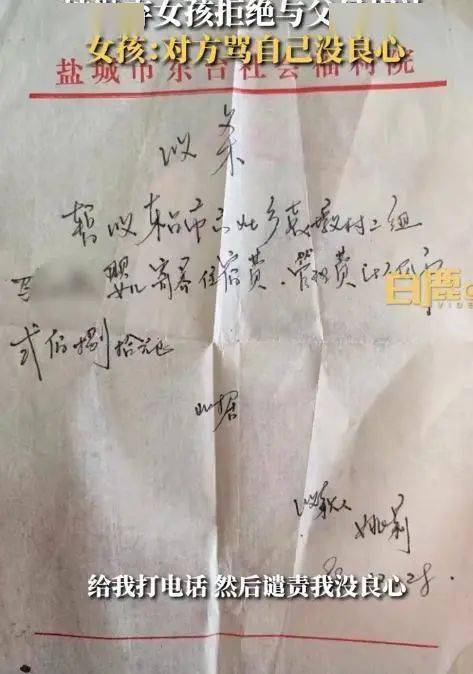 女孩拒绝与父
女孩:对方骂自己没良心
盐城市东台社会福利院
收条
暂收东台市
婴儿寄养住宿费、管理费
白鹿
VIDE
弍佰捌拾元
此据
收款人
给我打电话 然后谴责我没良心
28